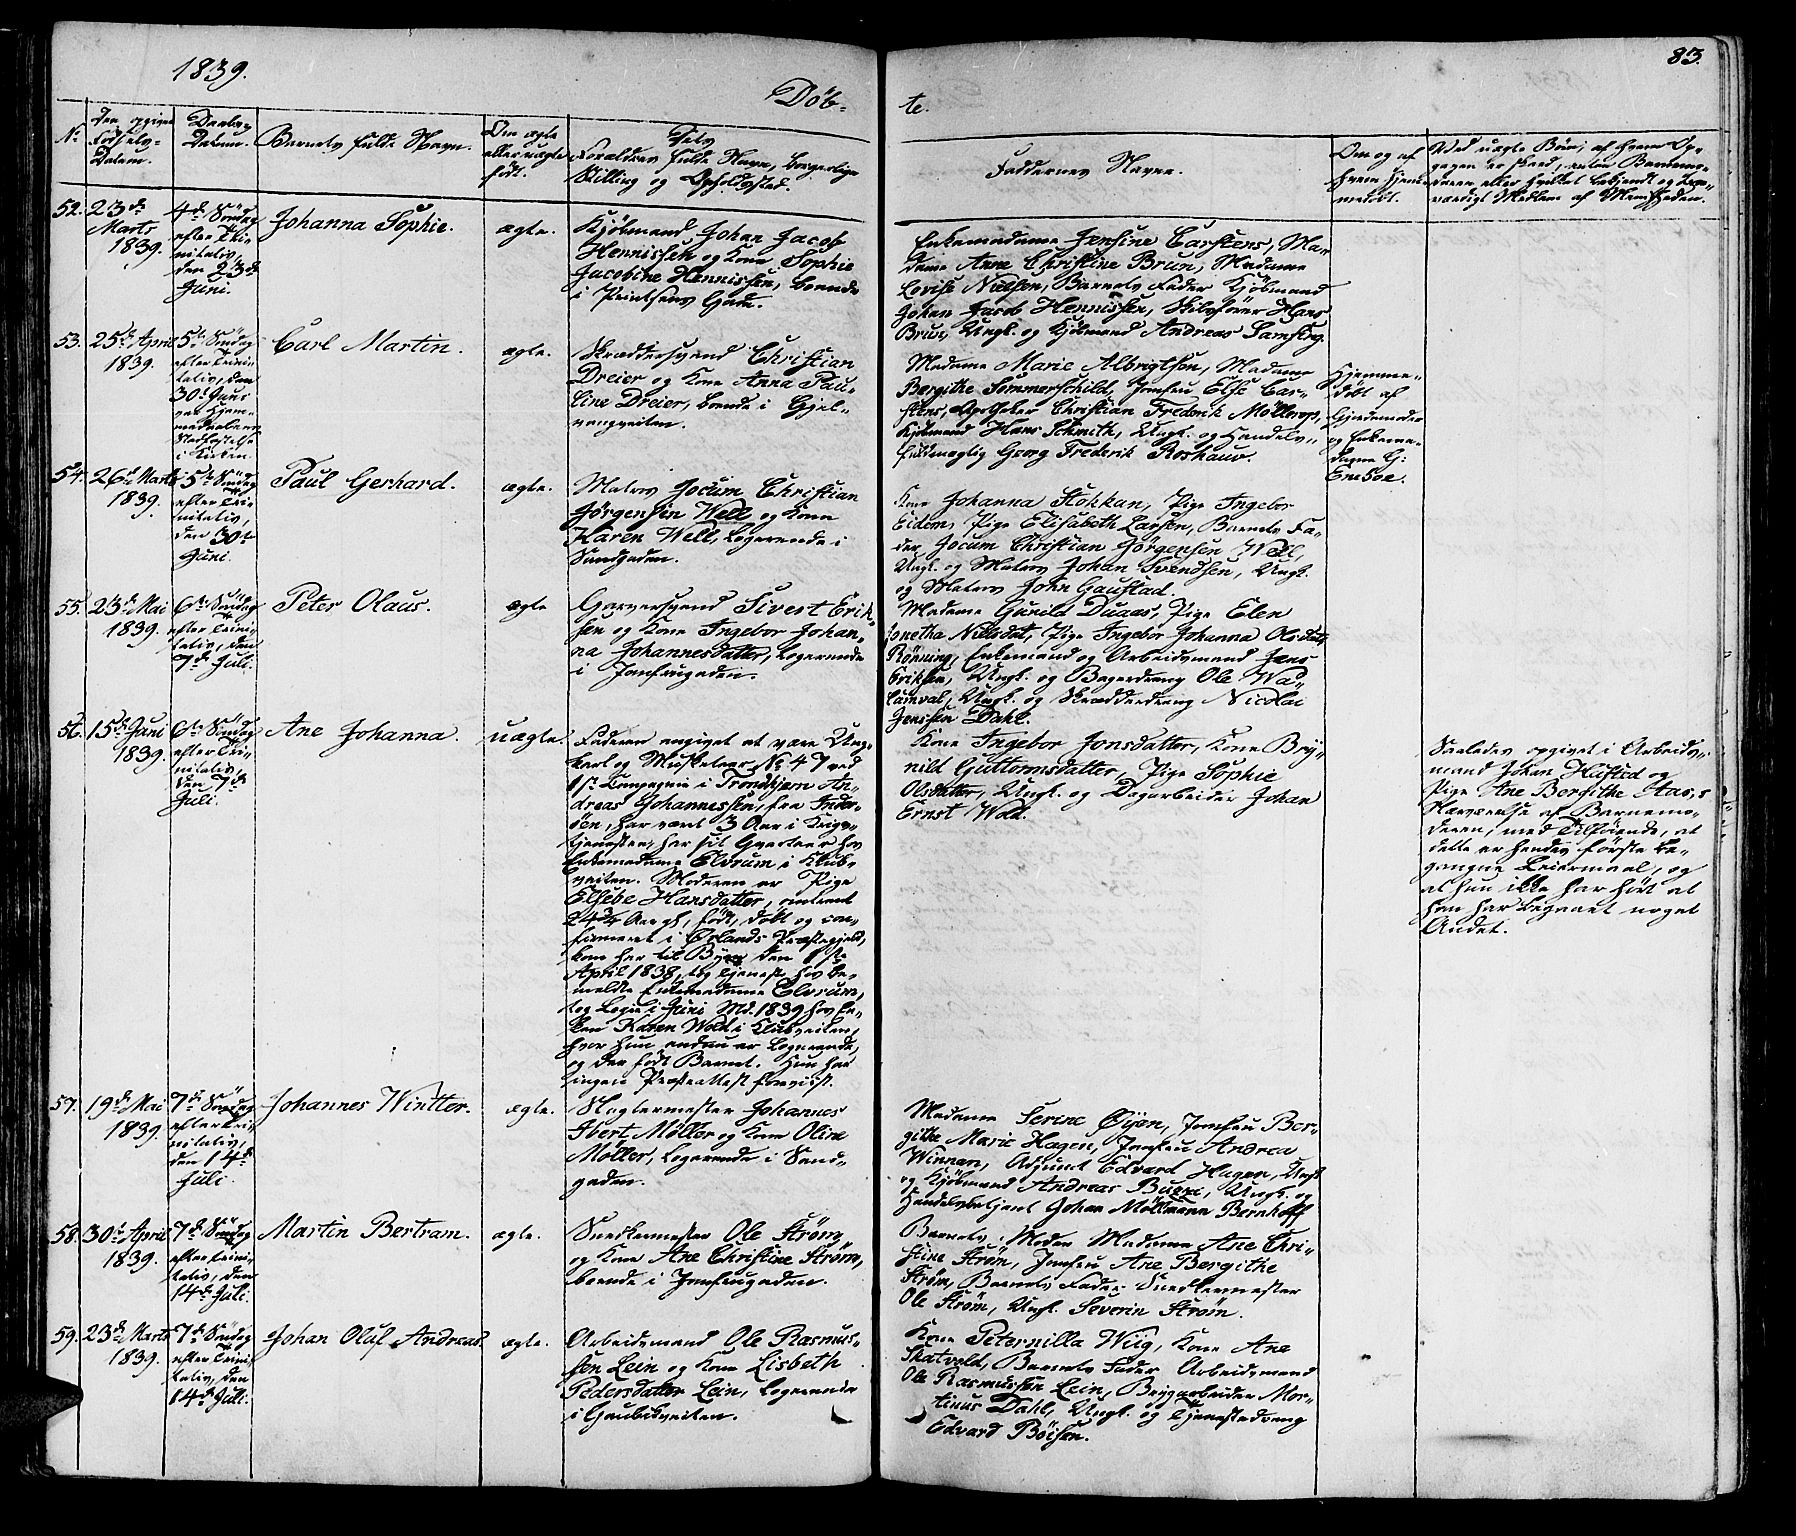 1839.
Döb-
te.
83.
No
Den opgivne
Födsels-
Datum.
Daabs-
Datum.
Barnets fulde Navn.
Om ægte
eller uægte
född.
Forældres fulde Navn, borgerlige
Stilling og Opholdssted.
Faddernes Navne.
Om og af
hvem hjem-
medöbt.
Ved uægte Börn; af hvem Op-
gaven er skeed, enten Barnemo-
deren eller hvilket bekjendt og tro-
værdigt Medlem af Menigheden.
52.
23de
Marts
1839.
4de Söndag
efter Tri-
nitatis,
den 23de
Juni.
Johanna Sophie.
ægte.
Kjöbmand Johan Jacob
Hennissen og Kone Sophie
Jacobine Hennissen, boende
i Printsens Gade.
Enkemadame Jensine Carstens, Ma-
dame Anne Christine Brun, Madame
Lovise Nielsen, Barnets Fader Kjöbmand
Johan Jacob Hennissen, Skibsförer Hans
Brun, Ungk. og Kjöbmand Andreas Samstrg.
53.
25de April
1839.
5te Söndag
efter Trini-
tatis, den
30te Juni
ved Hjem-
medaabens
Stadfæstelse
i Kirken.
Carl Martin.
ægte.
Skræddersvend Christian
Dreier og Kone Anna Pau-
line Dreier, boende i Gjel-
vangveiten.
Madame Marie Albrigtson, Madame
Bergithe Sommerschild, Jomfru Else Car-
stens, Apotheker Christian Frederik Möllerop,
Kjöbmand Hans Schmith, Ungk. og Handels-
fuldmægtig Georg Frederik Roshauw.
Hjemme-
döbt af
Gjordemoder
og Enkema-
dame G.
Eneboe.
54.
26de Marts
1839.
5te Söndag
efter Tri-
nitatis,
den 30te
Juni.
Paul Gerhard.
ægte.
Matros Jocum Christian
Jörgensen Well og Kone
Karen Well, logerende i
Sandgaden.
Kone Johanna Stokkan, Pige Ingebor
Eidem, Pige Elisabeth Larsen, Barnets Fa-
der Jocum Christian Jörgensen Well,
Ungk. og Matros Johan Svendsen, Ungk.
og Matros John Gaustad.
55.
23de Mai
1839.
6te Söndag
efter Trini-
tatis, den
7de Juli.
Peter Olaus.
ægte
Garversvend Sivert Erik-
sen og Kone Ingebor Johan-
na Johannesdatter, logerende
i Jomfrugaden.
Madame Gunild Duaas, Pige Elen
Jonetha Nilsdat, Pige Ingebor Johanna Olsdat.
Rönning, Enkemand og Arbeidsmand Jens
Eriksen, Ungk. og Bagerdreng Ole Wad-
lamval, Ungk. og Skrædderdreng Nicolai
Jenssen Dahl.
56.
15de Juni
1839.
6te Söndag
efter Tri-
nitatis,
den 7de
Juli.
Ane Johanna.
uægte.
Faderen angivet at være Ung-
karl og Musketeer No 47 ved
1ste Compagnie i Trondhjem An-
dreas Johannessen, fra Inder-
öen, har været 3 Aar i Krigs-
tjenesten, har sit Qvarteer hos
Enkemadame Elvrum i Klub-
veiten. Moderen er Pige
Elsebe Hansdatter, omtrent
24 3/4 Aar gl., född, döbt og con-
firmeret i Ørlands Præstegjeld,
kom her til Byen den 1ste
April 1838, tog Tjeneste hos be-
meldte Enkemadame Elvrum,
tog Logie i Juni Md. 1839 hos En-
ken Karen Wold i Klubveiten,
hvor hun endnu er logerende,
og der födt Barnet. Hun har
ingen Præsteattest forevist.
Kone Ingebor Jonsdatter, Kone Bry-
nild Guttormsdatter, Pige Sophie
Olsdatter, Ungk. og Dagarbeider Johan
Ernst Wold.
Saaledes opgivet i Arbeids-
mand Johan Husted og
Pige Ane Bergithe Aas's
Nærværelse af Barnemo-
deren, med Tilföiende, at
dette er hendes förste be-
gangne Leiermaal, og
at hun ikke har hört at
han har begaaet noget
Andet.
57.
19de Mai
1839.
7de Söndag
efter Tri-
nitatis,
den 14de
Juli.
Johannes Wintter.
ægte.
Slagtermester Johannes
Ibert Möller og Kone Oline
Möller, logerende i Sand-
gaden.
Madame Serine Øyen, Jomfru Ber-
githe Marie Hagen, Jomfru Andrea
Winnan, Adjunct Edvard Hagen, Ungk.
og Kjöbmand Andreas Buene, Ungk. og
Handelsbetjent Johan Möllmann Bernhoff
58.
30te April
1839.
7de Söndag
efter Trini-
tatis, den
14de Juli.
Martin Bertram.
ægte.
Snedkermester Ole Ström
og Kone Ane Christine Ström,
boende i Jomfrugaden.
Barnets Moder Madame Ane Chri-
stine Ström, Jomfru Ane Bergithe
Ström, Barnets Fader Snedkermester
Ole Ström, Ungk. Severin Ström.
59.
23de Marts
1839.
7de Söndag
efter Trini-
tatis, den
14de Juli.
Johan Oluf Andreas.
ægte.
Arbeidsmand Ole Rasmus-
sen Lein og Kone Lisbeth
Pedersdatter Lein, logerende
i Gaubekveiten.
Kone Peternilla Wiig, Kone Ane
Skatvold, Barnets Fader Arbeidsmand
Ole Rasmussen Lein, Brygarbeider Mor-
tinus Dahl, Ungk. og Tjenestedreng
Edvard Böisen.